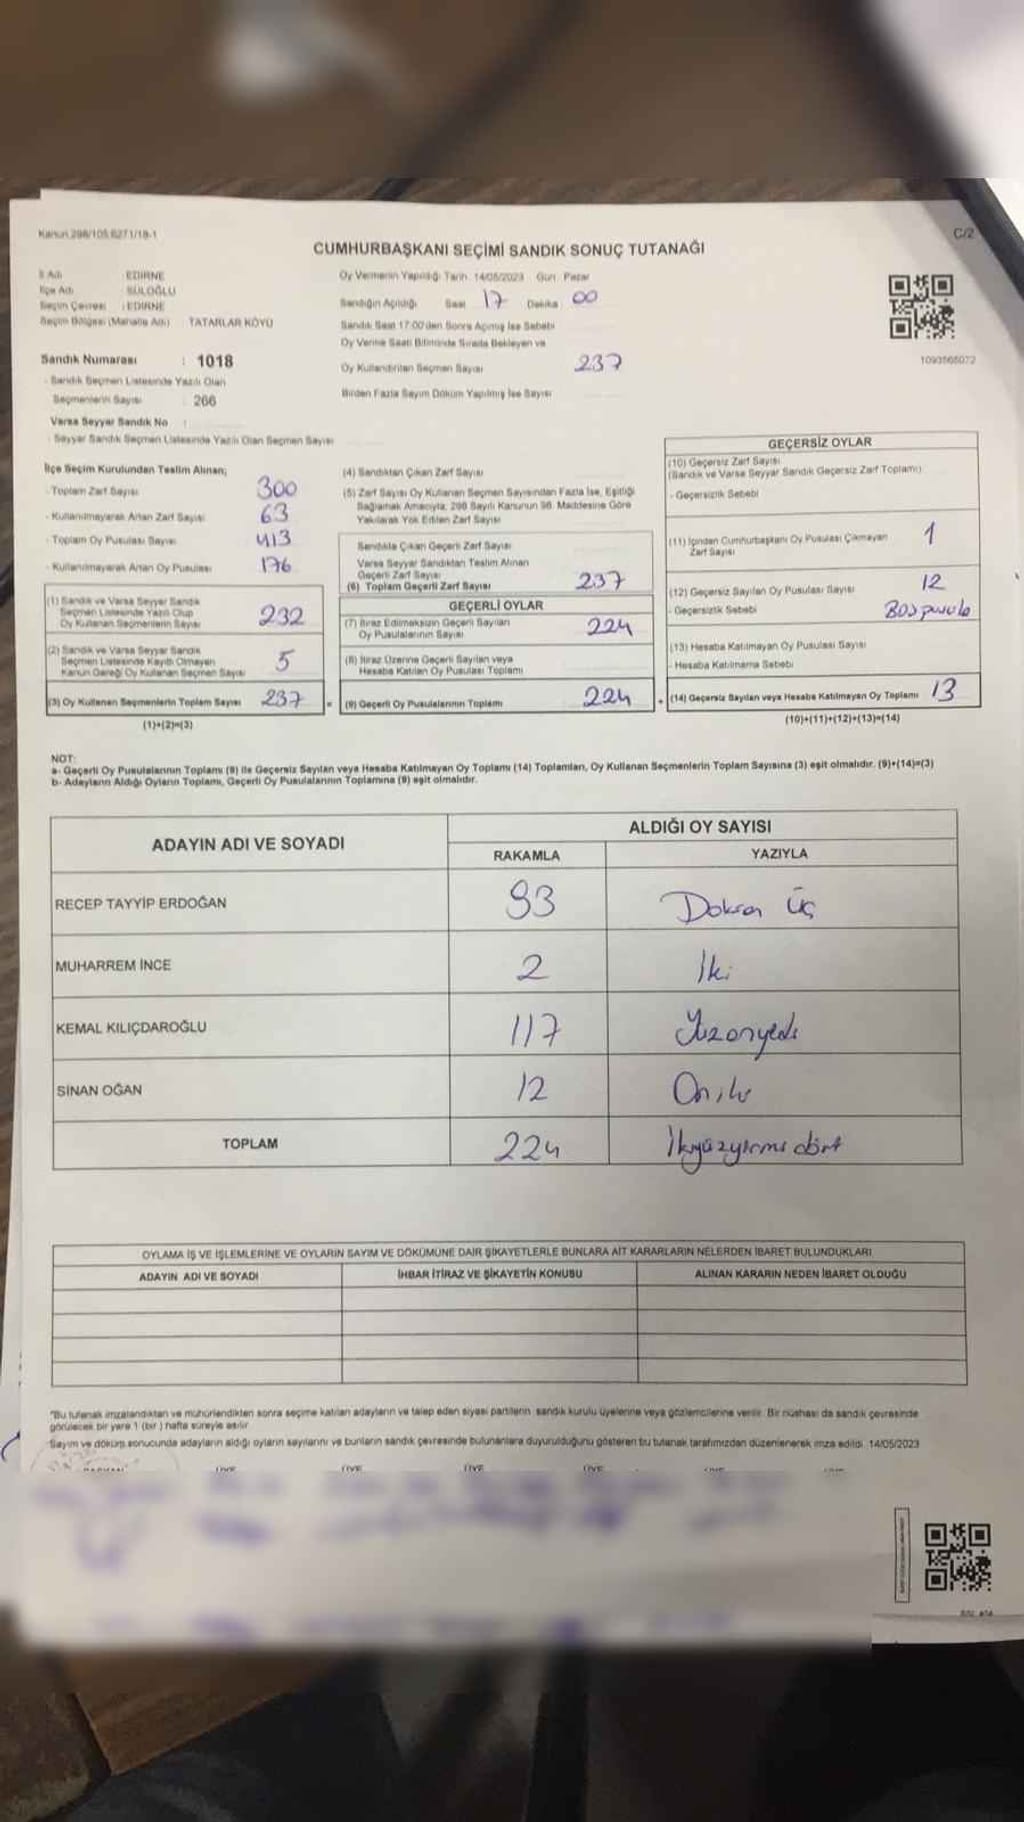 Kanun 298/105,6271/18-1
C/2
CUMHURBAŞKANI SEÇİMİ SANDIK SONUÇ TUTANAĞI
İl Adı EDİRNE
İlçe Adı SÜLOĞLU
Seçim Çevresi : EDİRNE
Seçim Bölgesi (Mahalle Adı) TATARLAR KÖYÜ
Oy Vermenin Yapıldığı Tarih 14/05/2023 Gün: Pazar
Sandığın Açıldığı Saat 17 Dakika 00
Sandık Saat 17:00'den Sonra Açılmış İse Sebebi
Oy Verme Saati Bitiminde Sırada Bekleyen ve
Oy Kullandırılan Seçmen Sayısı 237
Birden Fazla Sayım Döküm Yapılmış İse Sayısı
1090568072
Sandık Numarası : 1018
- Sandık Seçmen Listesinde Yazılı Olan
Seçmenlerin Sayısı : 266
Varsa Seyyar Sandık No :
- Seyyar Sandık Seçmen Listesinde Yazılı Olan Seçmen Sayısı
İlçe Seçim Kurulundan Teslim Alınan;
- Toplam Zarf Sayısı 300
- Kullanılmayarak Artan Zarf Sayısı 63
- Toplam Oy Pusulası Sayısı 413
- Kullanılmayarak Artan Oy Pusulası 176
(1) Sandık ve Varsa Seyyar Sandık
Seçmen Listesinde Yazılı Olup
Oy Kullanan Seçmenlerin Sayısı 232
(2) Sandık ve Varsa Seyyar Sandık
Seçmen Listesinde Kayıtlı Olmayan
Kanun Gereği Oy Kullanan Seçmen Sayısı 5
(3) Oy Kullanan Seçmenlerin Toplam Sayısı 237 =
(1)+(2)=(3)
(4) Sandıktan Çıkan Zarf Sayısı
(5) Zarf Sayısı Oy Kullanan Seçmen Sayısından Fazla İse, Eşitliği
Sağlamak Amacıyla, 298 Sayılı Kanunun 98. Maddesine Göre
Yakılarak Yok Edilen Zarf Sayısı
Sandıkta Çıkan Geçerli Zarf Sayısı
Varsa Seyyar Sandıktan Teslim Alınan
Geçerli Zarf Sayısı
(6) Toplam Geçerli Zarf Sayısı 237
GEÇERLİ OYLAR
(7) İtiraz Edilmeksizin Geçerli Sayılan
Oy Pusulalarının Sayısı 224
(8) İtiraz Üzerine Geçerli Sayılan veya
Hesaba Katılan Oy Pusulası Toplamı
(9) Geçerli Oy Pusulalarının Toplamı 224 +
GEÇERSİZ OYLAR
(10) Geçersiz Zarf Sayısı
(Sandık ve Varsa Seyyar Sandık Geçersiz Zarf Toplamı)
- Geçersizlik Sebebi
(11) İçinden Cumhurbaşkanı Oy Pusulası Çıkmayan
Zarf Sayısı 1
(12) Geçersiz Sayılan Oy Pusulası Sayısı 12
- Geçersizlik Sebebi Boş pusula
(13) Hesaba Katılmayan Oy Pusulası Sayısı
- Hesaba Katılmama Sebebi
(14) Geçersiz Sayılan veya Hesaba Katılmayan Oy Toplamı 13
(10)+(11)+(12)+(13)=(14)
NOT:
a- Geçerli Oy Pusulalarının Toplamı (9) ile Geçersiz Sayılan veya Hesaba Katılmayan Oy Toplamı (14) Toplamları, Oy Kullanan Seçmenlerin Toplam Sayısına (3) eşit olmalıdır. (9)+(14)=(3)
b- Adayların Aldığı Oyların Toplamı, Geçerli Oy Pusulalarının Toplamına (9) eşit olmalıdır.
ADAYIN ADI VE SOYADI
ALDIĞI OY SAYISI
RAKAMLA YAZIYLA
RECEP TAYYİP ERDOĞAN 93 Doksan üç
MUHARREM İNCE 2 İki
KEMAL KILIÇDAROĞLU 117 Yüzonyedi
SİNAN OĞAN 12 Oniki
TOPLAM 224 İkiyüzyirmi dört
OYLAMA İŞ VE İŞLEMLERİNE VE OYLARIN SAYIM VE DÖKÜMÜNE DAİR ŞİKAYETLERLE BUNLARA AİT KARARLARIN NELERDEN İBARET BULUNDUKLARI
ADAYIN ADI VE SOYADI İHBAR İTİRAZ VE ŞİKAYETİN KONUSU ALINAN KARARIN NEDEN İBARET OLDUĞU
*Bu tutanak imzalandıktan ve mühürlendikten sonra seçime katılan adayların ve talep eden siyasi partilerin sandık kurulu üyelerine veya gözlemcilerine verilir. Bir nüshası da sandık çevresinde
görülecek bir yere 1 (bir) hafta süreyle asılır.
Sayım ve döküm sonucunda adayların aldığı oyların sayılarını ve bunların sandık çevresinde bulunanlara duyurulduğunu gösteren bu tutanak tarafımızdan düzenlenerek imza edildi. 14/05/2023
ÜYE ÜYE ÜYE ÜYE